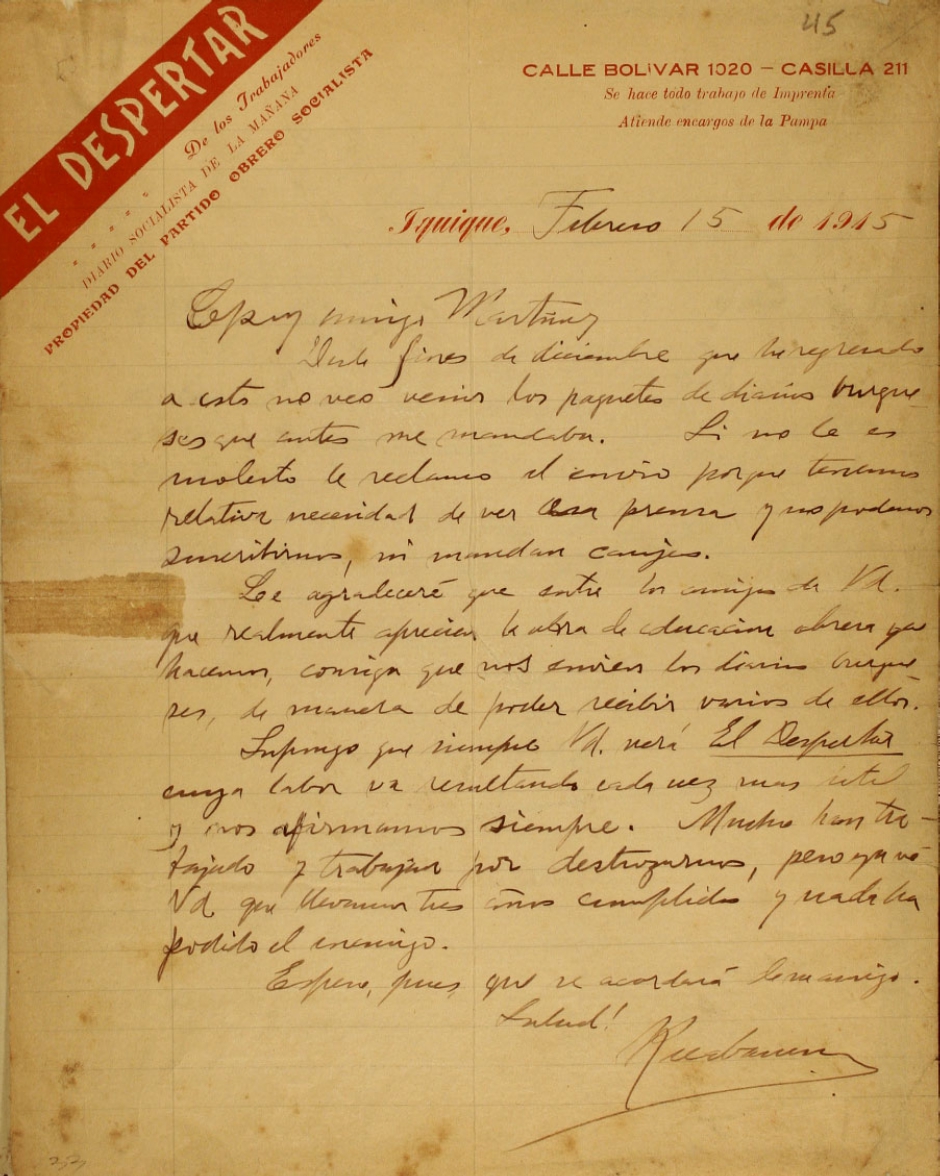 45
EL DESPERTAR
De los Trabajadores
DIARIO SOCIALISTA DE LA MAÑANA
PROPIEDAD DEL PARTIDO OBRERO SOCIALISTA
CALLE BOLIVAR 1020 – CASILLA 211
Se hace todo trabajo de Imprenta
Atiende encargos de la Pampa
Iquique, Febrero 15 de 1915
amigo Martinez
Desde fines de diciembre que he regresado
a esta no veo venir los paquetes de diarios burgue-
ses que antes me mandaba. Si no le es
molesto le reclamo el envio porque tenemos
relativa necesidad de ver esa prensa y no podemos
suscribirnos, ni mandan canjes.
Le agradeceré que entre los amigos de Vd.
que realmente aprecian la obra de educacion obrera que
hacemos, consiga que nos envien los diarios burgue
ses, de manera de poder recibir varios de ellos.
Supongo que siempre Vd. verá El Despertar
cuya labor va resultando cada vez mas útil
y nos afirmamos siempre. Mucho han tra-
bajado y trabajan por destrozarnos, pero ya vé
Vd que llevamos tres años cumplidos y nada ha
podido el enemigo.
Espero, pues, que se acordará amigo.
Salud!